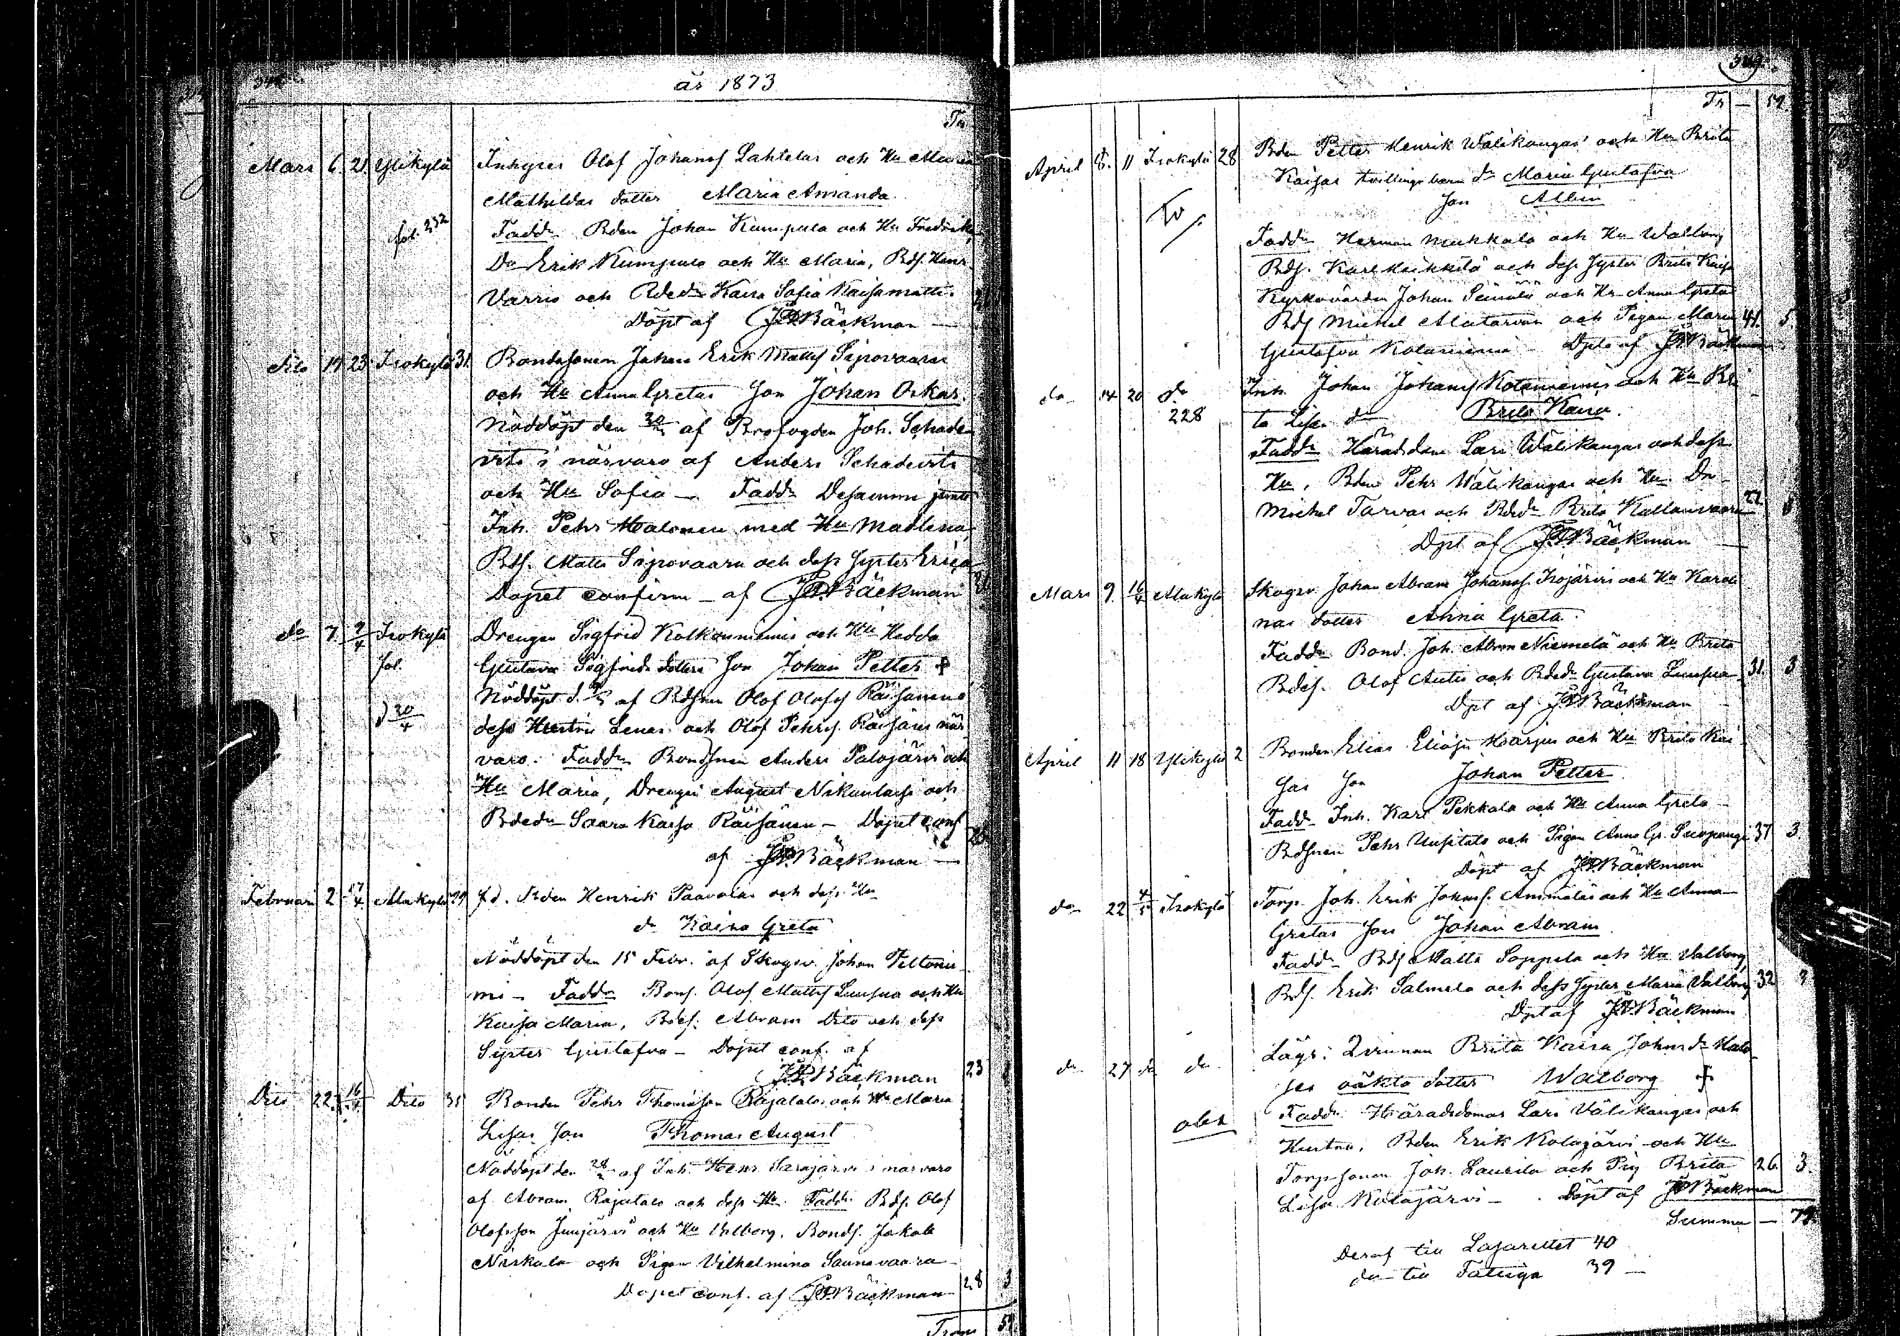 år 1873
Tr
Mars 6. 21. Ylikylä Inhyses Olof Johansf Lahtelas och Hu Maria
Mathildas dotter Maria Amanda
fol. 232 Fadd. Bden Johan Kumpula och Hu Fredrika
Do Erik Kumpula och Hu Maria, Bdf. Henr.
Varris och Bdedr Kaisa Sofia
Döpt af Bäckman
dito 19 23 Isokylä 31. Bondesonen Johan Erik Mattsf Sipovaaras
och Hu Anna Gretas son Johan Oskar.
Nöddöpt den af Brofogden Joh.
i närvaro af Anders
och Hu Sofia – Fadd. Desamme jemte
Inh. Pehr Halonen med Hu Madlena,
Bdf. Matts Sipovaara och dess syster Erica
Dopet confirm – af Bäckman
do 7. 9/4 Isokylä Drengen Sigfrid och Hu Hedda
fol. Gustava Sigfrids dotters son Johan Petter
Nöddöpt d. af Bdsonen Olof Olofsf Räisänens
d 30/4 dess Hustru Lenas och Olof Pehrsf Räisänens när
varo. Fadd. Bondsonen Anders Palojärvi och
Hu Maria, Drengen August och
Bdedr Saara Kaisa Räisänen – Dopet conf
af Bäckman
Februari 2 17/4 Alakylä 29 f.d. Henrik Paavolas och dess Hu
dr Kaisa Greta
Nöddöpt den 15 Febr. af Skogsv. Johan
Fadd. Bonf. Olof Mattsf Luusua och Hu
Kaisa Maria, Bdef. Abram Dito och dess
Syster Gustafva – Dopet conf. af
Bäckman 23
Dito 22. 16/4 Dito 35 Bonden Pehr Thomasson Rajalas och Hu Maria
Lisas son Thomas August
Nöddöpt den af Inh. Henr. Sarajärvi i närvaro
af Abram Rajatalo och dess Hu. Fadd. Bdf. Olof
Olofsson Junjärvi och Hu Valborg. Bondf. Jakob
Niskala och Pigan Vilhelmina Saunavaara
Dopet conf. af Bäckman 28 3
Trans 59
349.
Tr – 59.
April 8. 11 Isokylä 28 Bden Petter Henrik Wälikangas och Hu Brita
Kaisas tvillinge barn dr Maria Gustafva
Son Albin
Fadd. Herman Mukkala och Hu Walborg
Bdf. Karl och dess syster Brita Kaisa
Kyrkovärden Johan och Hu Anna Greta
Bdf Michel och Pigan Maria 41. 5
Gustafva Kotaniemi – Dpta af Bäckman
do 14 20 do Inh. Johan Johansf Kotaniemis och Hu Bri
228 ta Lisas dr Brita Kaisa.
Fadd. Häradsdom Lars Wälikangas och dess
Hu, Bden Pehr Wälikangas och Hu Dr
Michel Tarvas och Bdedr Brita Kallanvaara 22
Dpt af Bäckman
Mars 9. 16/4 Alakylä Skogsv. Johan Abram Johansf Isojärvis och Hu Karoli
nas dotter Anna Greta.
Fadd. Bond. Joh. Abram Niemelä och Hu Brita
Bdef. Olof Autio och Bdedr Gustava Luusua 31. 3
Dpt af Bäckman
April 11 18 Ylikylä 2 Bonden Elias Eliasf Harjus och Hu Brita Kai
sas son Johan Petter
Fadd. Inh. Karl Pekkala och Hu Anna Greta
Bdsonen Pehr och Pigan Anna Gr. 37 3
Döpt af Bäckman
do 22 4/5 Isokylä Torp. Joh. Erik Johansf. Ammäläs och Hu Anna
Gretas son Johan Abram
Fadd. Bdf Matts Soppela och Hu Valborg,
Bdf. Erik Salmela och dess syster Maria Valborg 32
Dpt af Bäckman
do 27 do do Lägr. Qvinnan Brita Kaisa Johansdr
ses oäkta dotter Walborg
Fadd. Häradsdomar Lars Välikangas och
Hustru, Bden Erik Kotajärvi och Hu
Torpsonen Joh. Laurila och Pig Brita 26. 3.
Lisa Kotajärvi – Döpt af Bäckman
Summa – 79
Deraf till Lasarettet 40
do till Fattiga 39 –